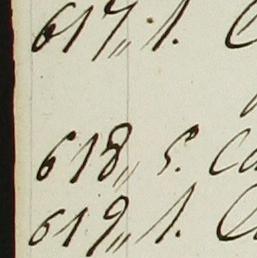 617,, 1.
618,, 5. Ca
619,, 1.